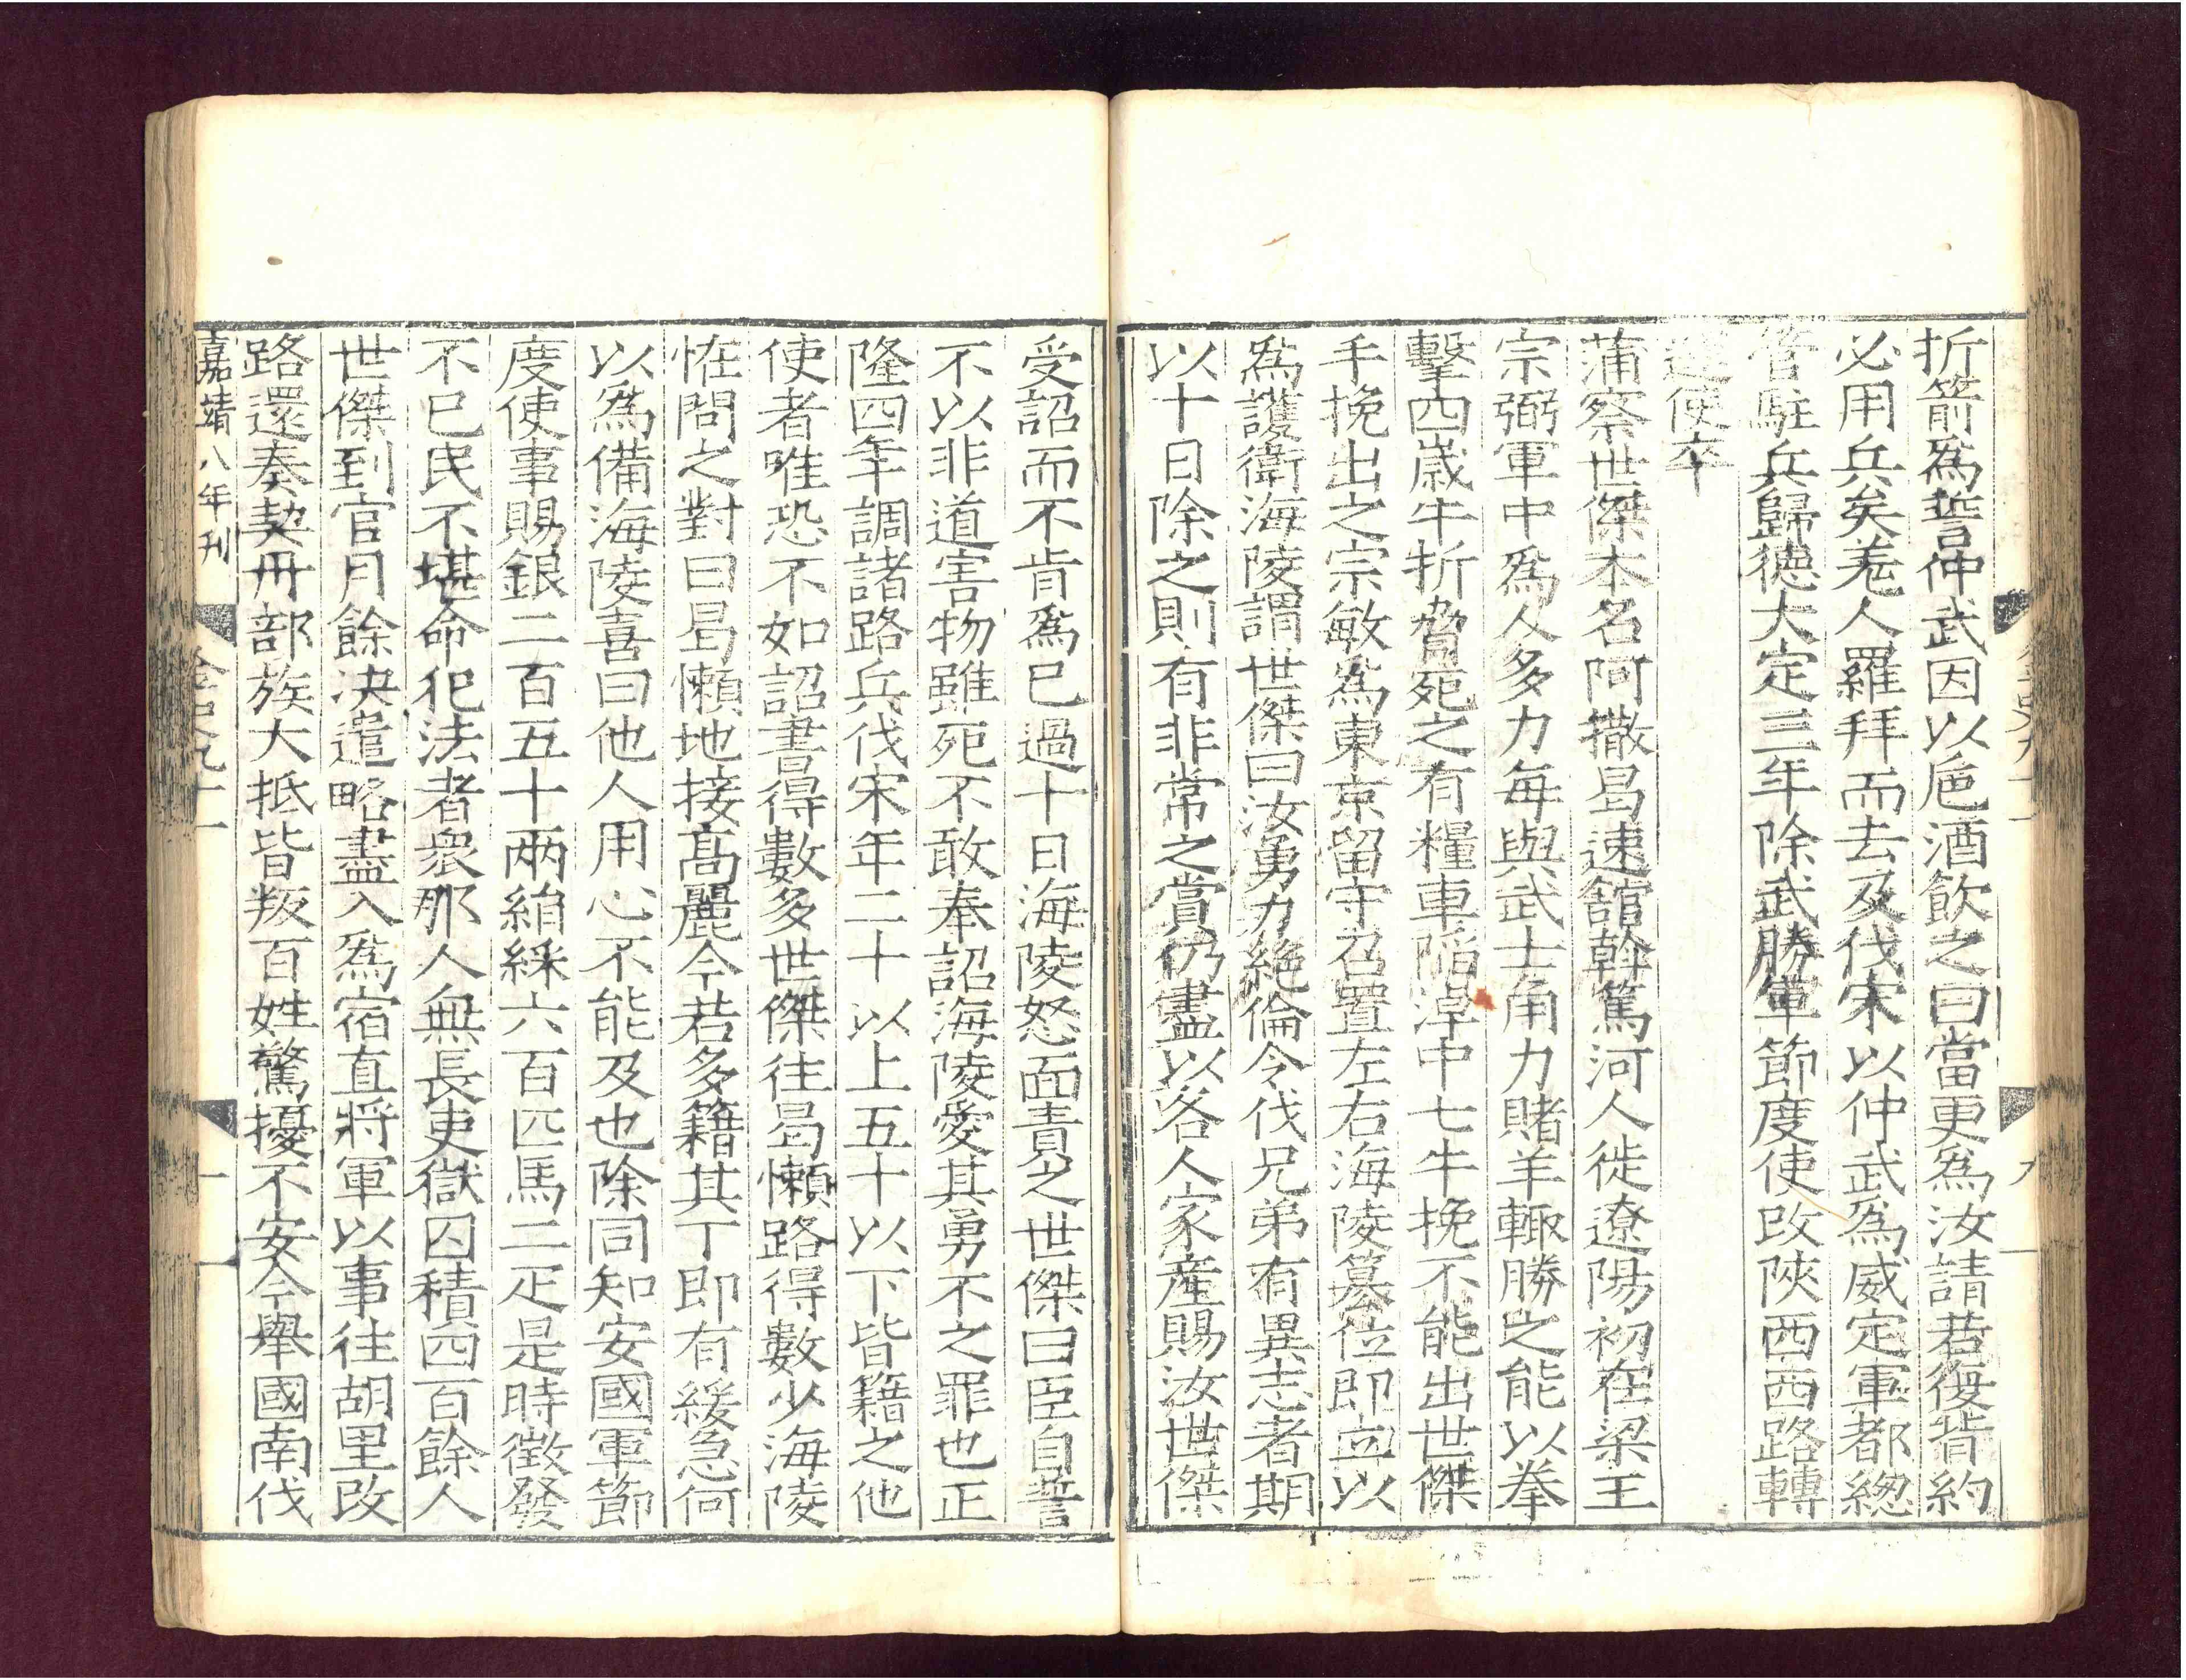 折箭爲誓仲武因以巵酒飲之曰當更爲汝請若復背約
必用兵矣羌人羅拜而去及伐宋以仲武爲威定軍都總
管駐兵歸德大定三年除武勝軍節度使改陝西西路轉
運使卒
蒲察世傑本名阿撒曷速館斡篤河人徙遼陽初在梁王
宗弼軍中爲人多力每與武士角力賭羊輙勝之能以拳
擊四歲牛折脅死之有糧車陷淖中七牛挽不能出世傑
手挽出之宗敏爲東京留守召置左右海陵簒位即位以
爲護衛海陵謂世傑曰汝勇力絶倫令伐兄弟有異志者期
以十日除之則有非常之賞仍盡以各人家產賜汝世傑
受詔而不肯爲已過十日海陵怒面責之世傑曰臣自誓
不以非道害物雖死不敢奉詔海陵愛其勇不之罪也正
隆四年調諸路兵伐宋年二十以上五十以下皆籍之他
使者唯恐不如詔書得數多世傑往曷懶路得數少海陵
恠問之對曰曷懶地接髙麗今若多籍其丁即有緩急何
以爲備海陵喜曰他人用心不能及也除同知安國軍節
度使事賜銀二百五十兩絹綵六百匹馬二疋是時徵發
不已民不堪命犯法者衆邢人無長吏獄囚積四百餘人
世傑到官月餘決遣略盡入爲宿直將軍以事往胡里改
路還奏契丹部族大抵皆叛百姓驚擾不安今舉國南伐
嘉靖八年刊
金史九十一